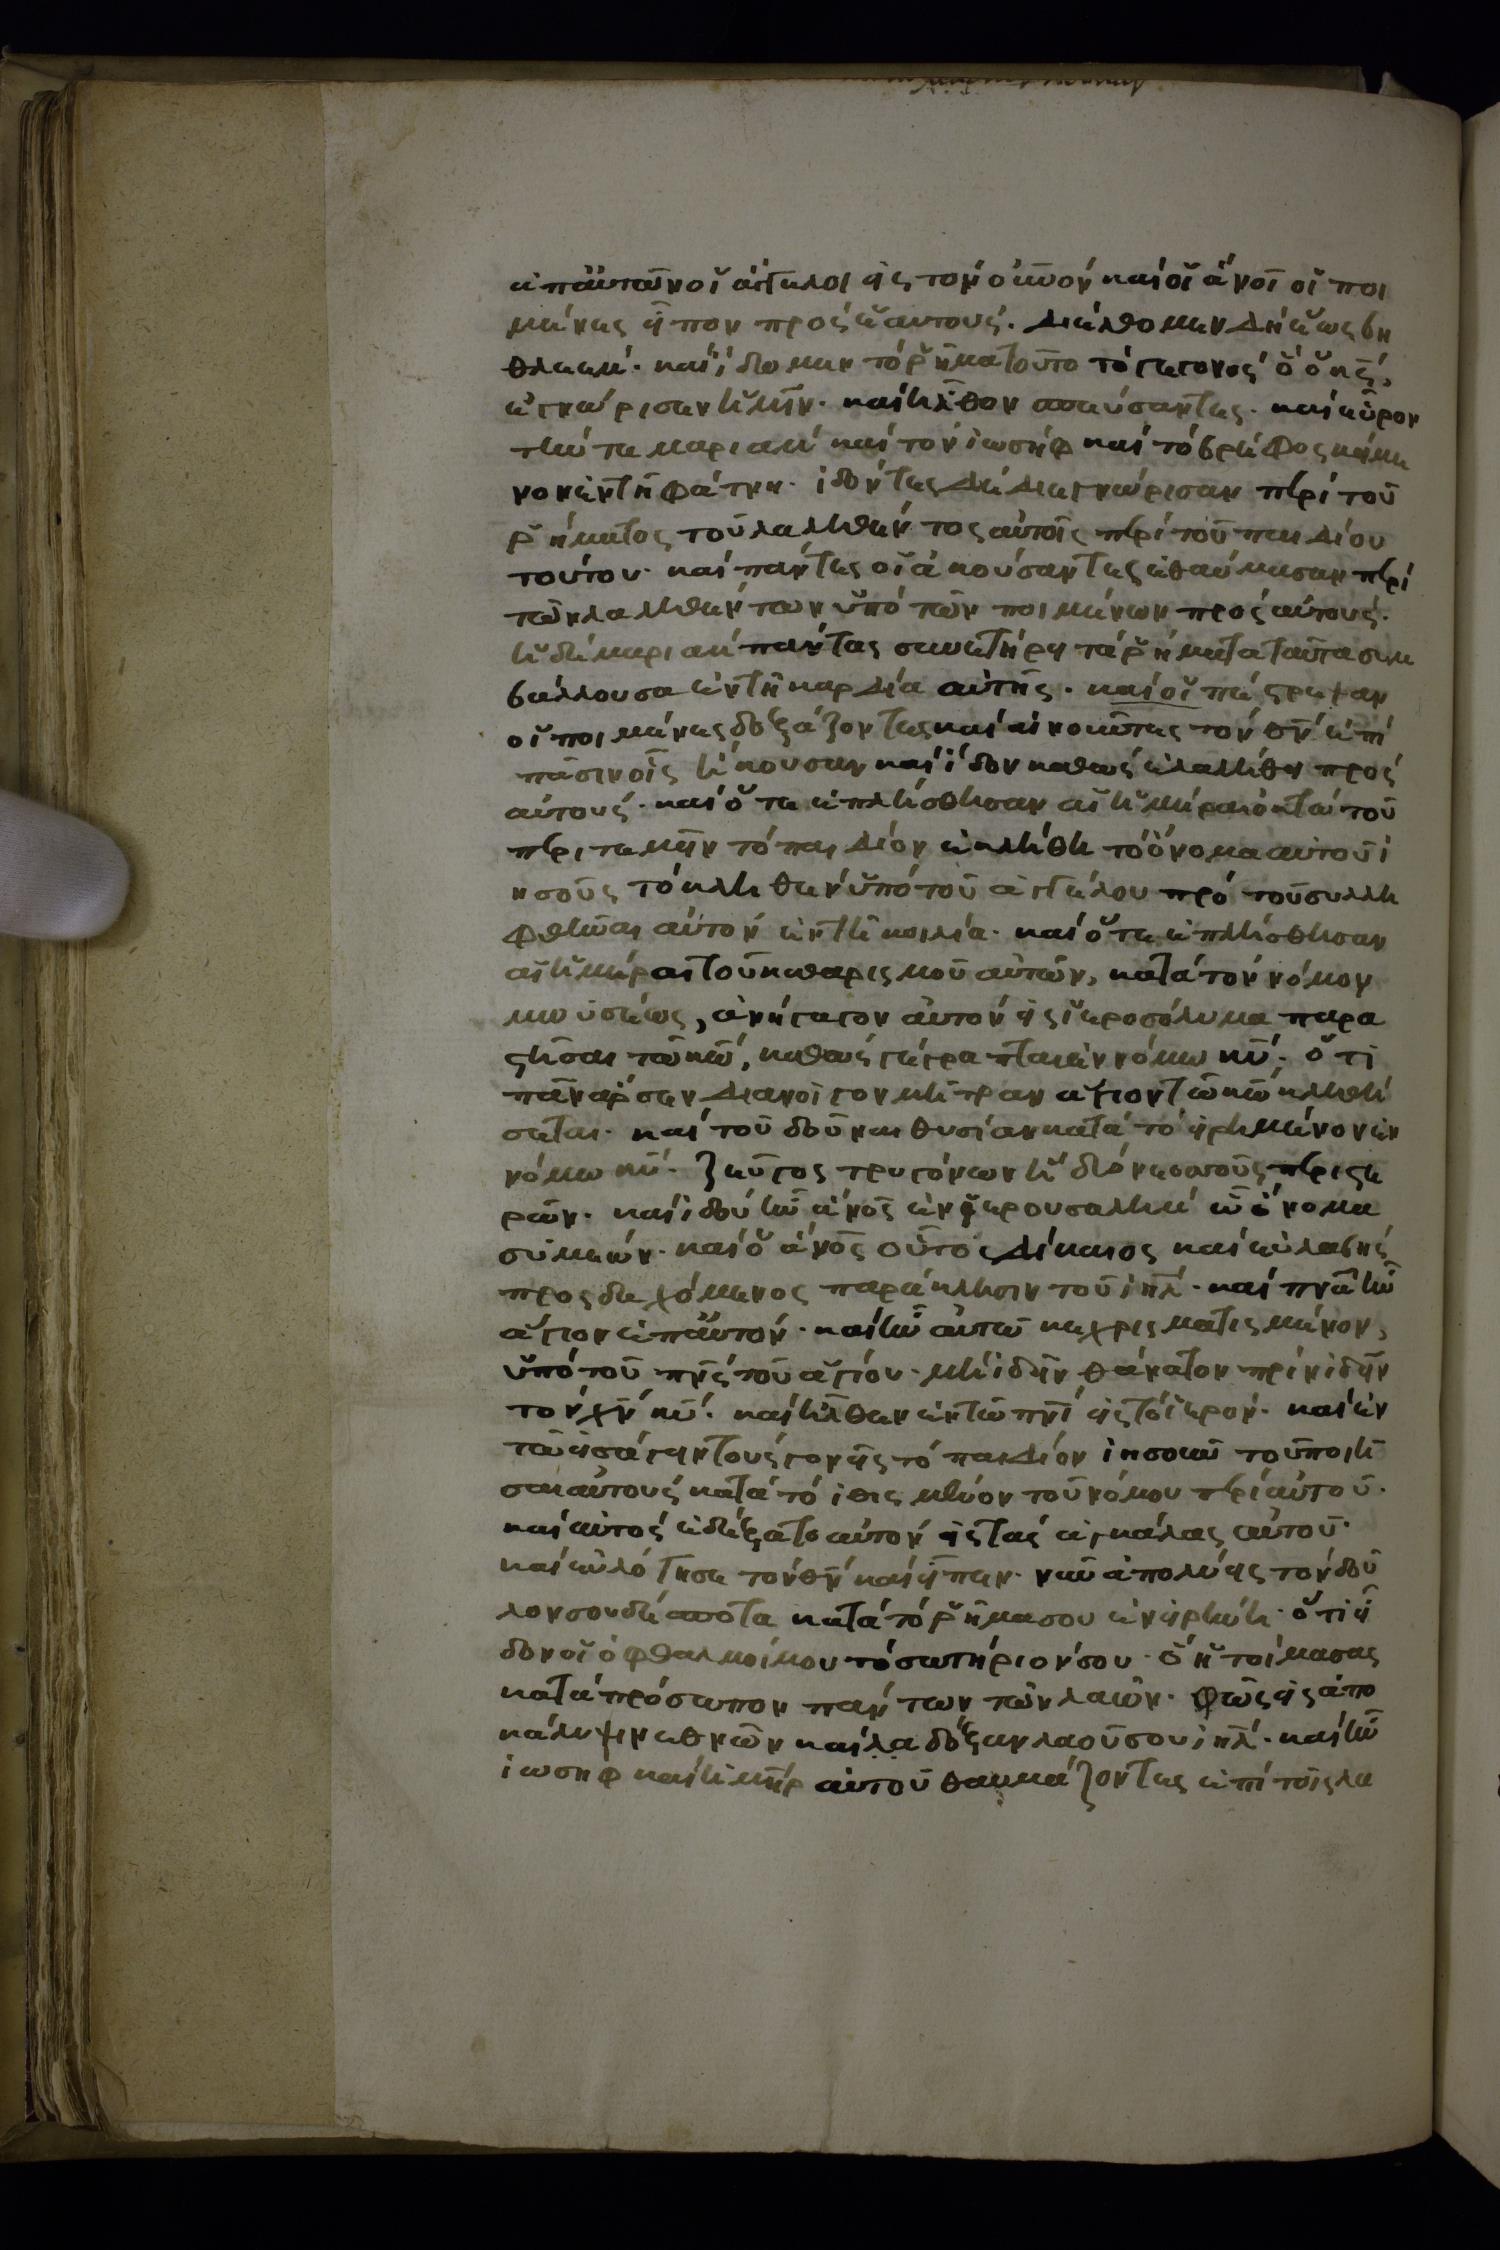 ἀπ αὐτῶν οἱ ἄγγελοι εἰς τὸν οὐνον καὶ οἱ ἄνοι οἱ ποι
μένες εἶπον πρὸς ἑαυτούς. διέλθομεν δὴ ἕως βη
θλεέμ. καὶ ἴδωμεν τὸ ῥῆμα τοῦτο τὸ γεγονὸς ὃ ὁ κς
ἐγνώρισεν ἡμῖν. καὶ ἦλθον σπεύσαντες. καὶ εὗρον
τήν τε μαριὰμ καὶ τὸν ἰωσὴφ καὶ τὸ βρέφος κείμε
νον ἐν τῆ φάτνη. ἰδόντες δὲ διεγνώρισαν περὶ τοῦ
ῥήματος τοῦ λαληθέντος αὐτοῖς περὶ τοῦ παιδίου
τούτου. καὶ πάντες οἱ ἀκούσαντες ἐθαύμασαν περὶ
τῶν λαληθέντων ὑπὸ τῶν ποιμένων πρὸς αὐτούς.
ἡ δὲ μαριὰμ πάντας συνετήρει τὰ ῥήματα ταῦτα συμ
βάλλουσα ἐν τῆ καρδία αὐτῆς. καὶ ὑπέστρεψαν
οἱ ποιμένες δοξάζοντες καὶ αἰνοῦντες τὸν θν ἐπὶ
πᾶσιν οἷς ἤκουσαν καὶ ἴδον καθὼς ἐλαλήθη πρὸς
αὐτούς. καὶ ὅτε ἐπλήσθησαν αἱ ἡμέραι ὀκτὼ τοῦ
περιτεμεῖν τὸ παιδίον ἐκλήθη τὸ ὄνομα αὐτοῦ ἰ
ησοῦς τὸ κληθὲν ὑπὸ τοῦ ἀγγέλου πρὸ τοῦ συλλη
φθῆναι αὐτὸν ἐν τῆ κοιλία. καὶ ὅτε ἐπλήσθησαν
αἱ ἡμέραι τοῦ καθαρισμοῦ αὐτῶν, κατὰ τὸν νόμον
μωϋσέως, ἀνήγαγον αὐτὸν εἰς ἱεροσόλυμα παρα
στῆσαι τῶ κω, καθὼς γέγραπται ἐν νόμω κυ. ὅτι
πᾶν ἄρσεν διανοῖγον μήτραν ἅγιον τῶ κω κληθή
σεται. καὶ τοῦ δοῦναι θυσίαν κατὰ τὸ εἰρημένον ἐν
νόμω κυ. ζεῦγος τρυγόνων ἢ δύο νεοσσοὺς περιστε
ρῶν. καὶ ἰδοὺ ἦν ἄνος ἐν ἱερουσαλὴμ ὧ ὄνομα
συμεών. καὶ ὁ ἄνος οὗτος δίκαιος καὶ εὐλαβὴς
προσδεχόμενος παράκλησιν τοῦ ἰηλ. καὶ πνα ἦν
ἅγιον ἐπ αὐτόν. καὶ ἦν αὐτῶ κεχρισματισμένον,
ὑπὸ τοῦ πνς τοῦ ἁγίου. μὴ ἰδεῖν θάνατον πρὶν ἰδεῖν
τὸν χν κυ. καὶ ἦλθεν ἐν τῶ πνι εἰς τὸ ἱερόν. καὶ ἐν
τῶ εἰσάγειν τοὺς γονεῖς τὸ παιδίον ἰησοῦν τοῦ ποιῆ
σαι αὐτοὺς κατὰ τὸ ἰθισμένον τοῦ νόμου περὶ αὐτοῦ.
καὶ αὐτὸς ἐδέξατο αὐτὸν εἰς τὰς ἀγκάλας αὐτοῦ.
καὶ εὐλόγησε τὸν θν καὶ εἶπεν. νῦν ἀπολύεις τὸν δοῦ
λον σου δέσποτα κατὰ τὸ ῥῆμα σου ἐν εἰρήνη. ὅτι εἶ
δον οἱ ὀφθαλμοί μου τὸ σωτήριόν σου. ὃ ἡτοίμασας
κατὰ πρόσωπον πάντων τῶν λαῶν. φῶς εἰς ἀπο
κάλυψιν ἐθνῶν καὶ λα δόξαν λαοῦ σου ἰηλ. καὶ ἦν
ἰωσὴφ καὶ ἡ μηρ αὐτοῦ θαυμάζοντες ἐπὶ τοῖς λα